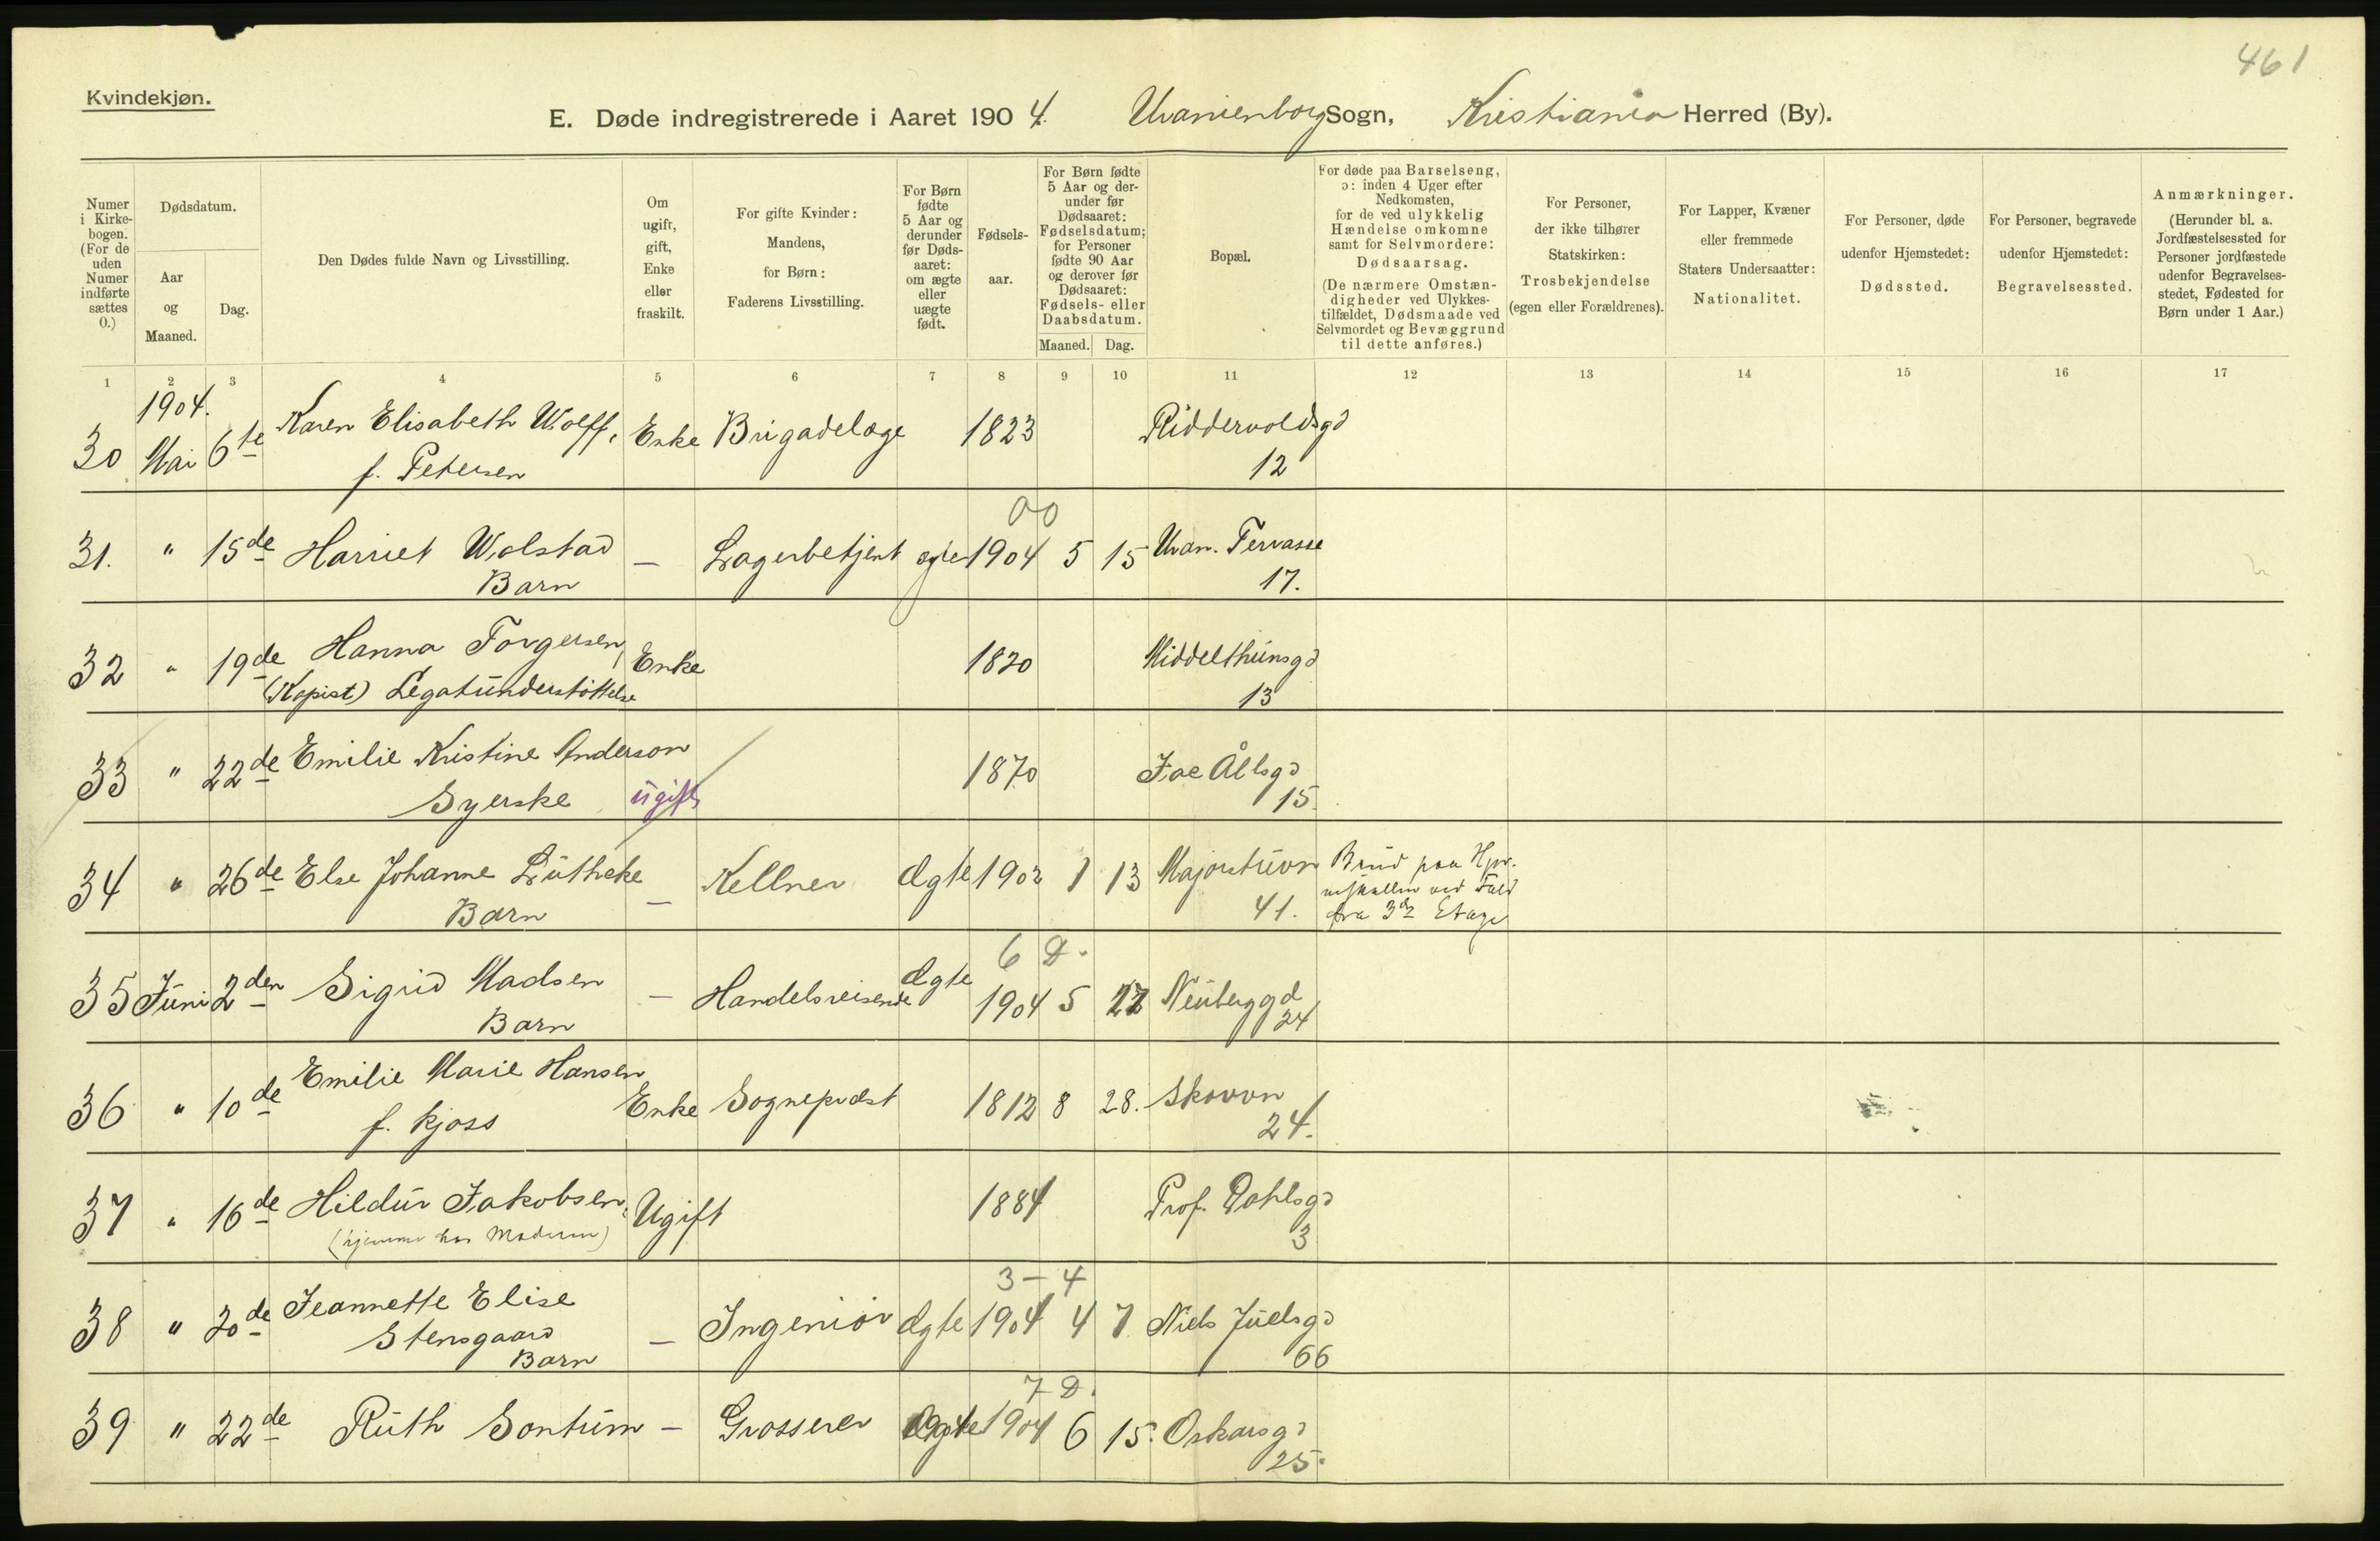 461
Kvindekjøn.
E. Døde indregistrerede i Aaret 1904. Uranienborg Sogn, Kristiania Herred (By).
Numer i Kirkebogen. (For de uden Numer indførte sættes 0.)
Dødsdatum.
Aar og Maaned.
Dag.
Den Dødes fulde Navn og Livsstilling.
Om ugift, gift, Enke eller fraskilt.
For gifte Kvinder: Mandens, for Børn: Faderens Livsstilling.
For Børn fødte 5 Aar og derunder før Dødsaaret: om ægte eller uægte født.
Fødselsaar.
For Børn fødte 5 Aar og derunder før Dødsaaret: Fødselsdatum; for Personer fødte 90 Aar og derover før Dødsaaret: Fødsels- eller Daabsdatum.
Maaned. Dag.
Bopæl.
For døde paa Barselseng, ɔ: inden 4 Uger efter Nedkomsten, for de ved ulykkelig Hændelse omkomne samt for Selvmordere: Dødsaarsag.
(De nærmere Omstændigheder ved Ulykkestilfældet, Dødsmaade ved Selvmordet og Bevæggrund til dette anføres.)
For Personer, der ikke tilhører Statskirken: Trosbekjendelse (egen eller Forældrenes).
For Lapper, Kvæner eller fremmede Staters Undersaatter: Nationalitet.
For Personer, døde udenfor Hjemstedet: Dødssted.
For Personer, begravede udenfor Hjemstedet: Begravelsessted.
Anmærkninger.
(Herunder bl. a. Jordfæstelsessted for Personer jordfæstede udenfor Begravelsesstedet, Fødested for Børn under 1 Aar.)
1 2 3 4 5 6 7 8 9 10 11 12 13 14 15 16 17
1904.
30 Mai 6te Karen Elisabeth Wolff, Enke Brigadelæge 1823 Riddervoldsgd
f. Petersen 12
00
31. " 15de Harriet Wolstad — Lagerbetjent ægte 1904 5 15 Uran. Terrasse
Barn 17.
32 " 19de Hanna Torgersen, Enke 1820 Middelthunsgd
(Kopist) Legatunderstøttelse 13
33 " 22de Emilie Kristine Anderson 1870 Jac Ålls gd
Syerske ugift 15.
34 " 26de Else Johanne Lütheke — Kellner Ægte 1902 1 13 Majorstuvn Brud paa
Barn 41. ved Fald
fra 3de Etage
6 D.
35 Juni 2den Sigrid Madsen — Handelsreisende Ægte 1904 5 27 Neuberggd
Barn 24
36 " 10de Emilie Marie Hansen Enke Sogneprest 1812 8 28. Skovvn
f. Kjoss 24.
37 " 16de Hildur Jakobsen, Ugift 1884 Prof. Dahlsgd
(hjemme hos Moderen) 3
3 – 4
38 " 20de Jeannette Elise — Ingeniør Ægte 1904 4 7 Niels Juelsgd
Stensgaard 66
Barn
7 D.
39 " 22de Ruth Sontum — Grosserer Ægte 1904 6 15. Oskarsgd
25.